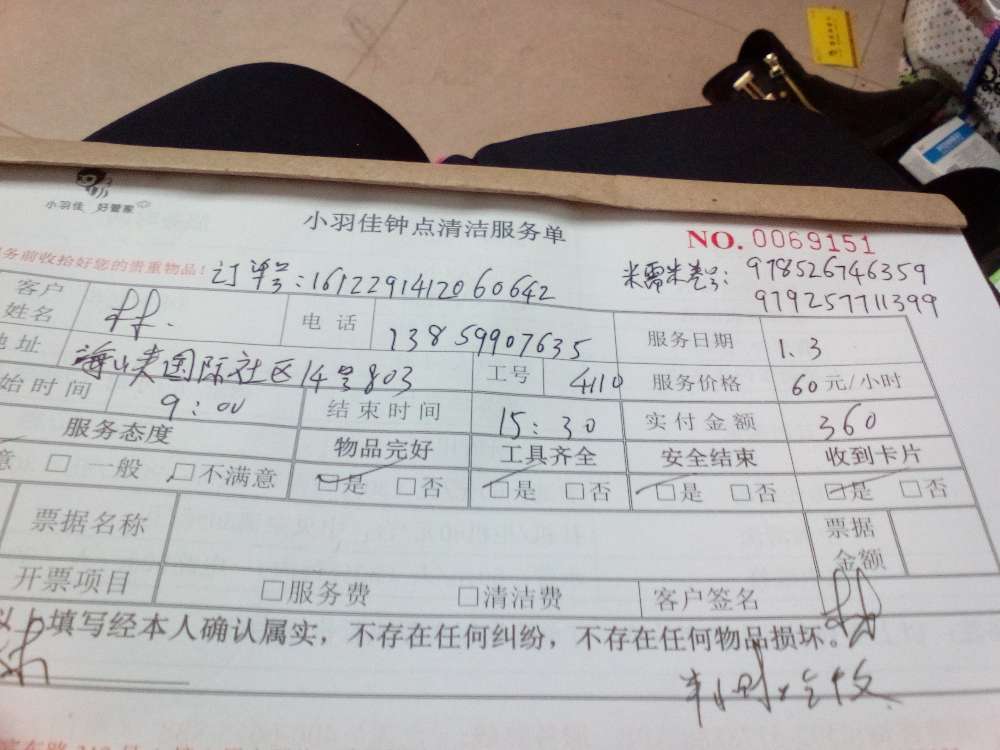 小羽佳 好管家
小羽佳钟点清洁服务单
NO.0069151
务前收拾好您的贵重物品!
订单号:1612291412060642
米需米卷号: 978526746359
979257711399
客户姓名
电话 13859907635
服务日期 1.3
地址 海山美国际社区14号803
工号 4110
服务价格 60元/小时
始时间 9:00
结束时间 15:30
实付金额 360
服务态度
物品完好
工具齐全
安全结束
收到卡片
意 □一般 □不满意
□是 □否
□是 □否
□是 □否
□是 □否
票据名称
票据金额
开票项目
□服务费 □清洁费
客户签名
以上填写经本人确认属实,不存在任何纠纷,不存在任何物品损坏。